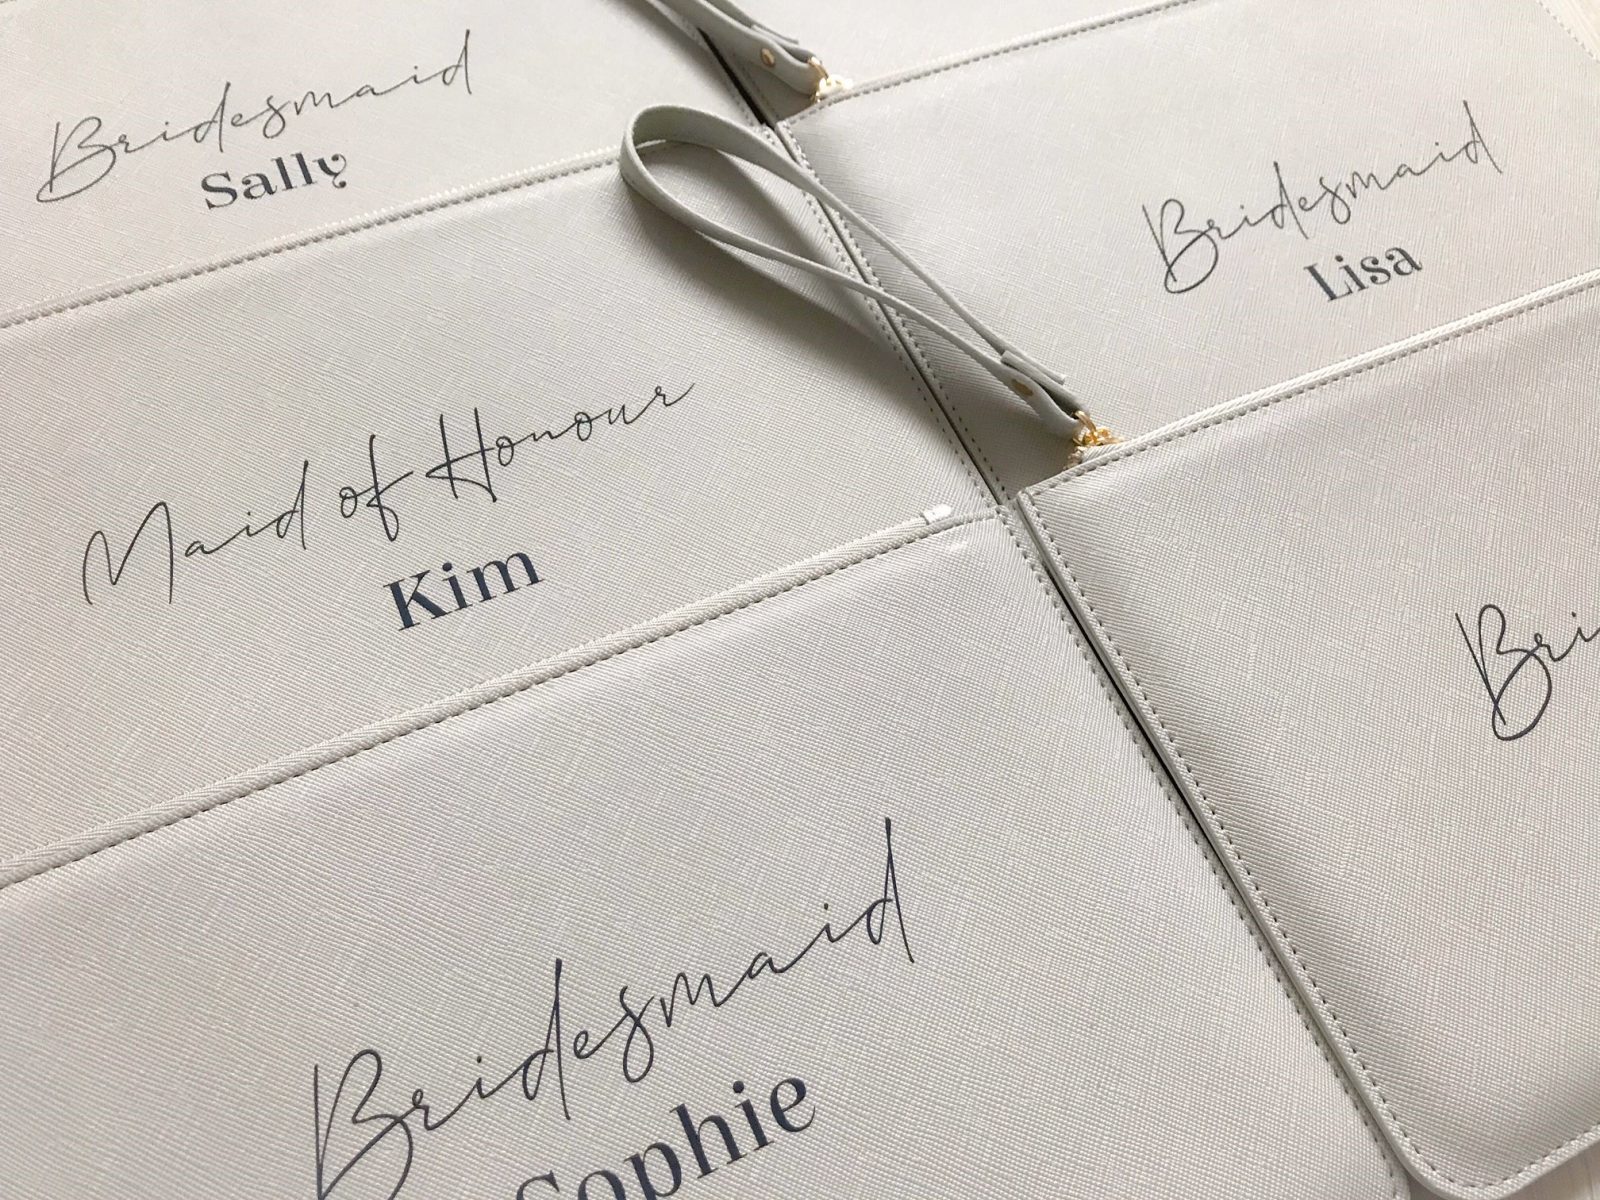 Bridesmaid
Sally
Bridesmaid
Lisa
Maid of Honour
Kim
Bri
Bridesmaid
Sophie